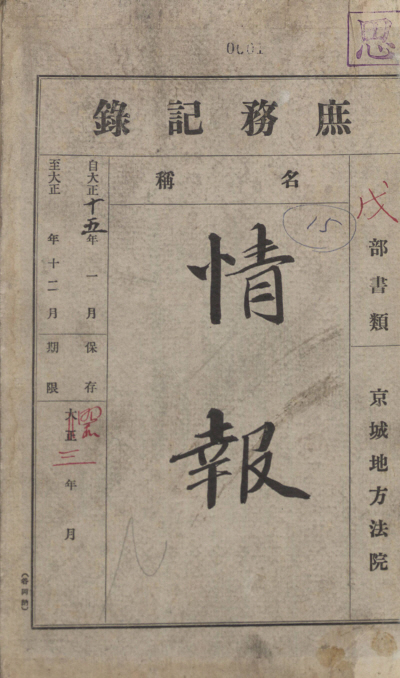 0001
思
庶務記錄
戌部書類
京城地方法院
名稱
情報
自大正十五年一月
至大正 年十二月
保存
期限
三年 月